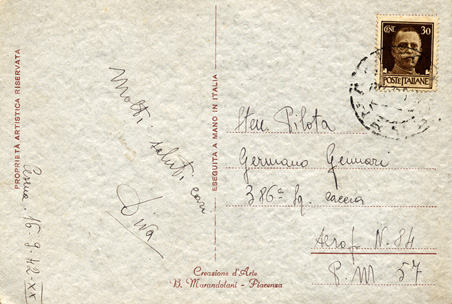 PROPRIETÀ ARTISTICA RISERVATA
16 9 42 - XX
Molti saluti cari
Diva
ESEGUITA A MANO IN ITALIA
CENT 30
POSTE ITALIANE
Pilota
Germano Gennari
386ª Sq. caccia
Aerop. N. 84
P. M 57
Creazione d'Arte
B. Marandolani - Piacenza